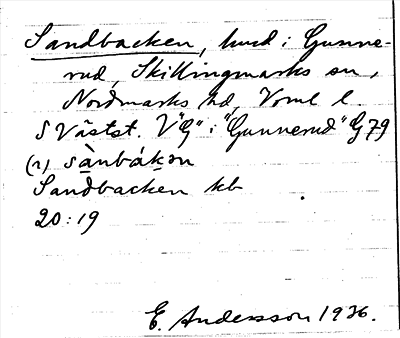 Sandbacken, hmd i Gunne-
rud, Skillingmarks sn,
Nordmarks hd, Vrml l.
S Västst. V "G" i "Gunnerud" G 79
(n) sànbákən
Sandbacken kb
20:19
E. Andersson 1936.